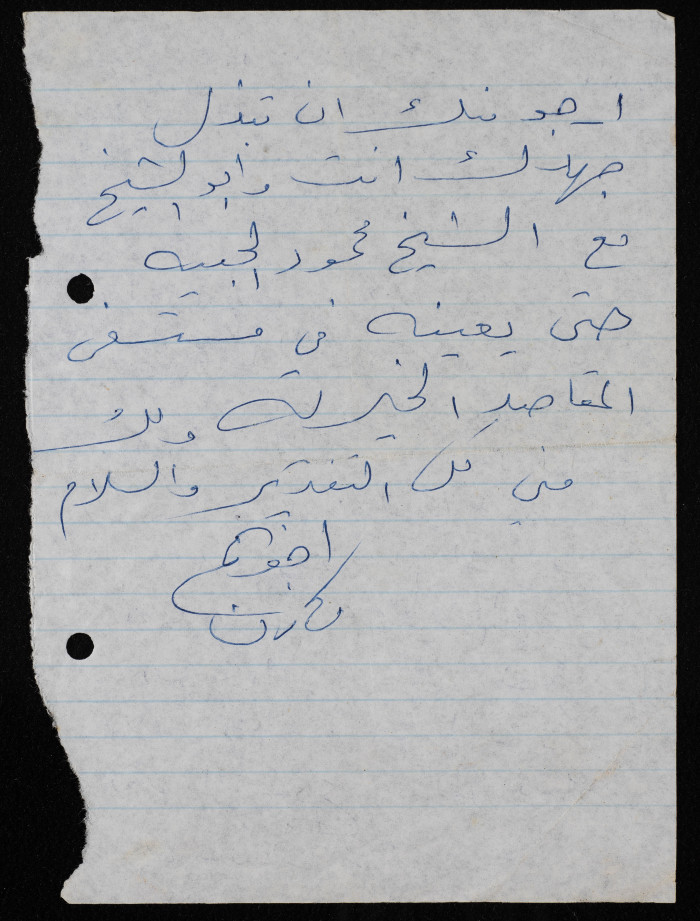 ارجو منك ان تبذل
جهدك انت وابو الشيخ
مع الشيخ محمود الحبيه
حتى يعينه في مستشفى
المقاصد الخيرية ولك
مني كل التقدير والسلام
اخوكم